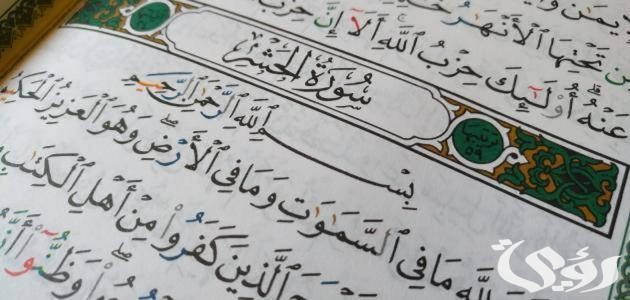 يمن
من تحتها ٱلأنهر
عنه أولئك حزب ٱلله ألا إن حزب
سورة الحشر
ترتيبها ٥٩
بسم ٱلله ٱلرحمن ٱلرحيم
لله ما في ٱلسموت وما في ٱلأرض وهو ٱلعزيز ٱلحك
ٱلذين كفروا من أهل ٱلكتب
وظنوا أن
رؤيا